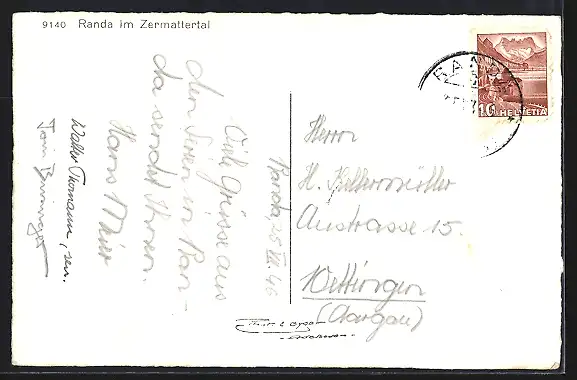 9140 Randa im Zermattertal
Randa, 25. VII. 46
Viele Grüsse aus
den Ferien in Ran-
da sendet Ihnen
Hans
Walter Thomann, sen.
Herrn
H. Kellermüller
Austrasse 15.
Wettingen
(Aargau)
RANDA
10 HELVETIA